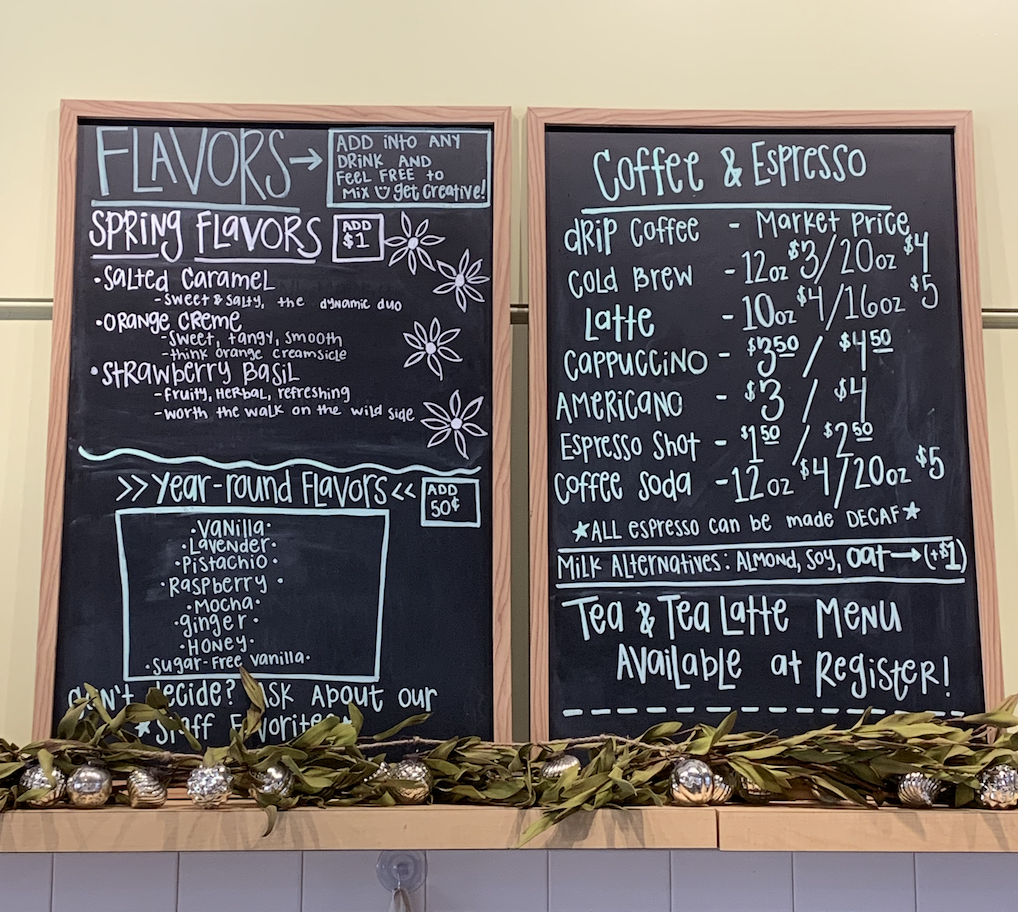 FLAVORS →
ADD iNto ANY
DRiNK AND
FeeL FREE to
Mix get Creative!
SPRiNg FLAVORS
ADD
$1
•SaLted CarameL
-Sweet & SaLty, the dynamic duo
•ORange CReme
-Sweet, tangy, smooth
-think orange creamsicle
•StRawberry BasiL
-fruity, HeRbaL, refreshing
-worth the waLk on the wiLd side
>> Year-round FLavors <<
ADD
50¢
•Vanilla•
•Lavender•
•Pistachio•
•Raspberry•
•Mocha•
•ginger•
•Honey•
•Sugar-Free Vanilla•
Can't Decide? Ask About our
★Staff Favorites★
Coffee & Espresso
dRip Coffee - Market Price
Cold Brew - 12oz $3/20oz $4
Latte - 10oz $4/16oz $5
Cappuccino - $3.50 / $4.50
Americano - $3 / $4
Espresso Shot - $1.50 / $2.50
Coffee Soda - 12oz $4/20oz $5
★ALL espresso can be made DECAF★
Milk Alternatives: Almond, Soy, oat→(+$1)
Tea & Tea Latte Menu
Available at Register!